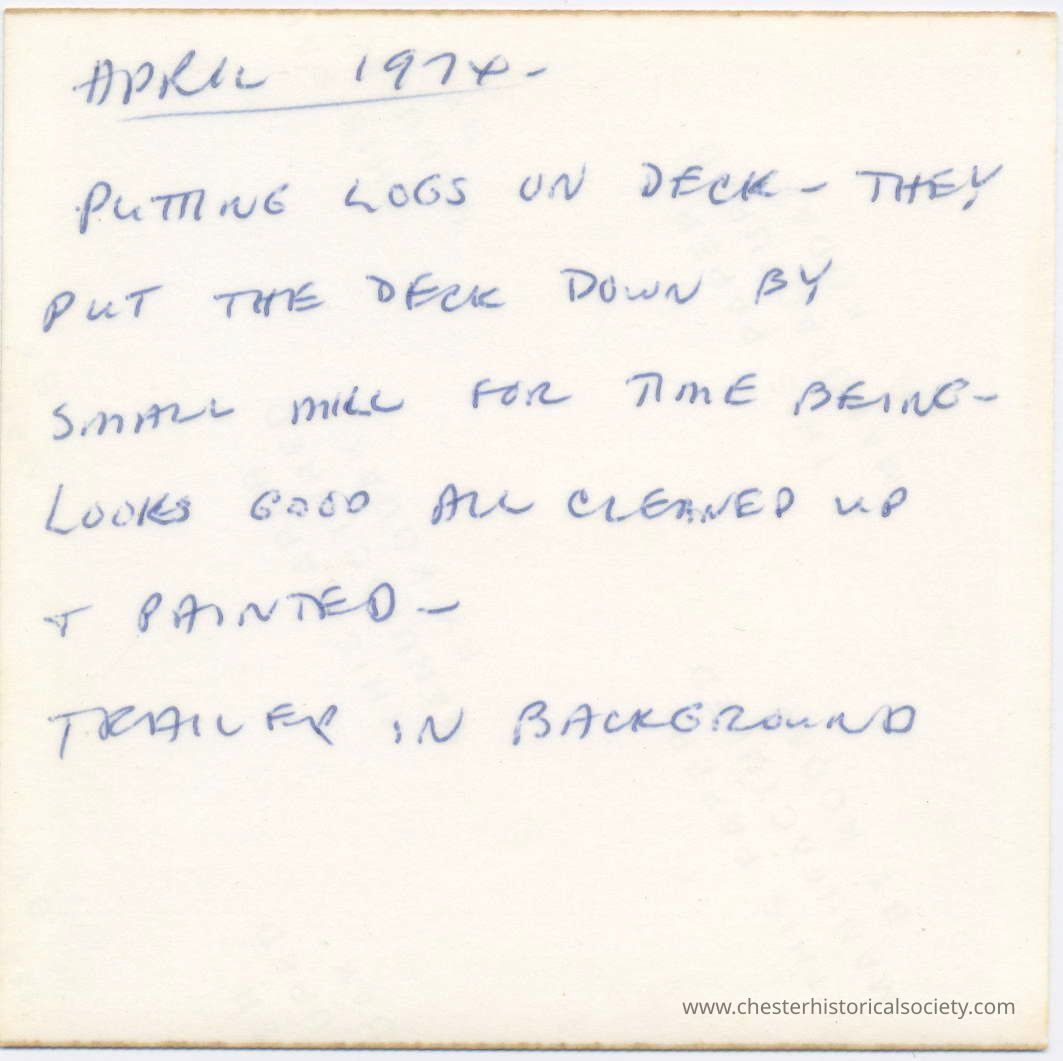 APRIL 1974-
PUTTING LOGS ON DECK - THEY
PUT THE DECK DOWN BY
SMALL MILL FOR TIME BEING-
LOOKS GOOD ALL CLEANED UP
+ PAINTED -
TRAILER IN BACKGROUND
www.chesterhistoricalsociety.com